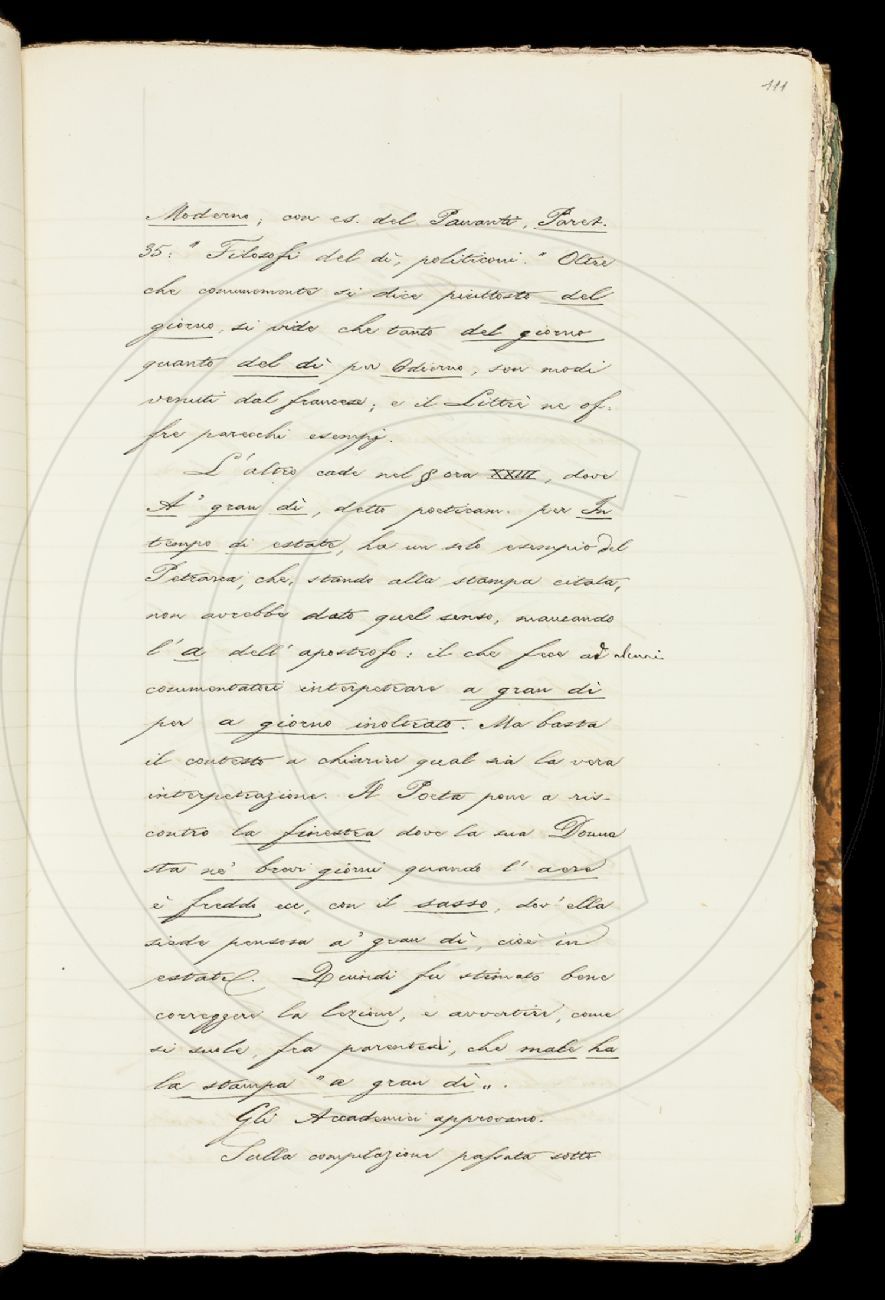 111
Moderno; con es. del Pananti, Paret.
35: "Filosofi del dì, politiconi." Oltre
che comunemente si dice piuttosto del
giorno, si vide che tanto del giorno
quanto del dì per Odierno, son modi
venuti dal francese; e il Littrè ne of-
fre parecchi esempj.
L'altro cade nel § ora XXIII, dove
A' gran dì, detto poeticam. per In
tempo di estate, ha un solo esempio del
Petrarca, che, stando alla stampa citata,
non avrebbe dato quel senso, mancando
l'a dell'apostrofo: il che fece ad alcuni
commentatori interpetrare a gran dì
per a giorno inoltrato. Ma basta
il contesto a chiarire qual sia la vera
interpetrazione. Il Poeta pone a ris-
contro la finestra dove la sua Donna
sta ne' brevi giorni quando l'aere
è freddo ecc, con il sasso, dov'ella
siede pensosa a' gran dì, cioè in
estate. Quindi fu stimato bene
correggere la lezione, e avvertire, come
si suole, fra parentesi, che male ha
la stampa "a gran dì".
Gli Accademici approvano.
Sulla compilazione passata sotto